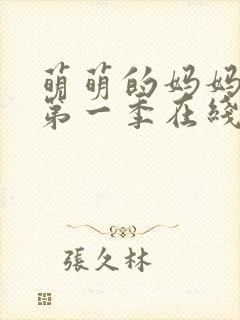 萌萌的妈妈
第一季在綫
張久林